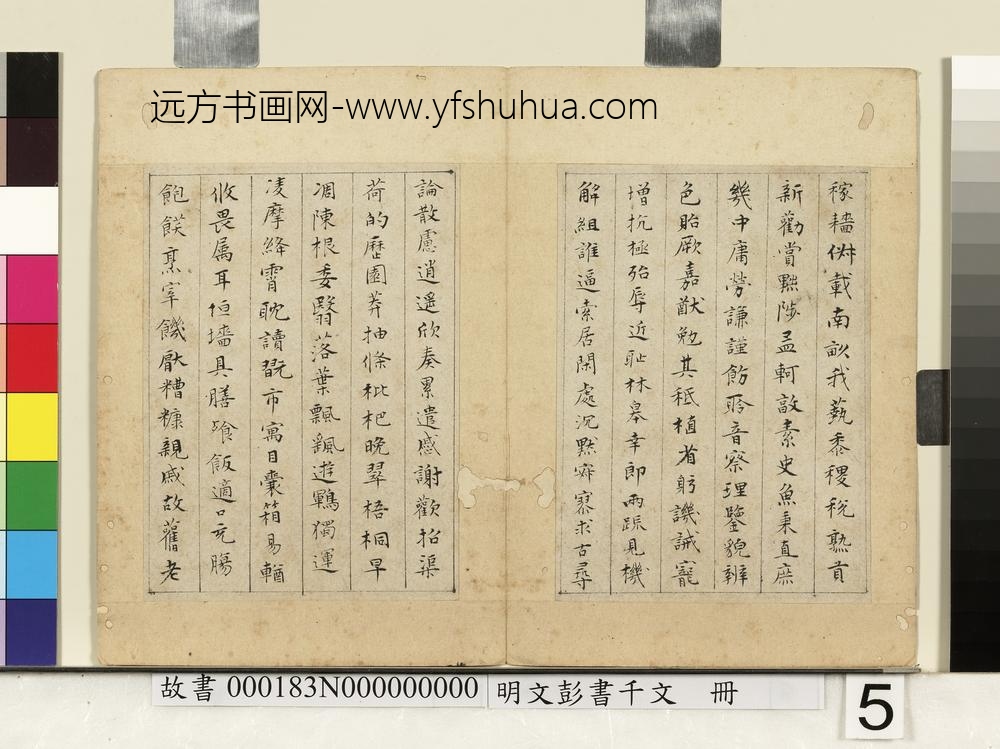 远方书画网-www.yfshuhua.com
稼穡俶載南畝我蓺黍稷稅熟貢
新勸賞黜陟孟軻敦素史魚秉直庶
幾中庸勞謙謹飭聆音察理鑒貌辨
色貽厥嘉猷勉其祗植省躬譏誡寵
增抗極殆辱近恥林皋幸即兩疏見機
解組誰逼索居閑處沉默寂寥求古尋
論散慮逍遙欣奏累遣慼謝歡招渠
荷的歷園莽抽條枇杷晚翠梧桐早
凋陳根委翳落葉飄颻遊鵾獨運
凌摩絳霄耽讀翫市寓目囊箱易輶
攸畏属耳垣墻具膳飡飯適口充腸
飽飫烹宰饑厭糟糠親戚故舊老
故書 000183N000000000 明文彭書千文 冊
5